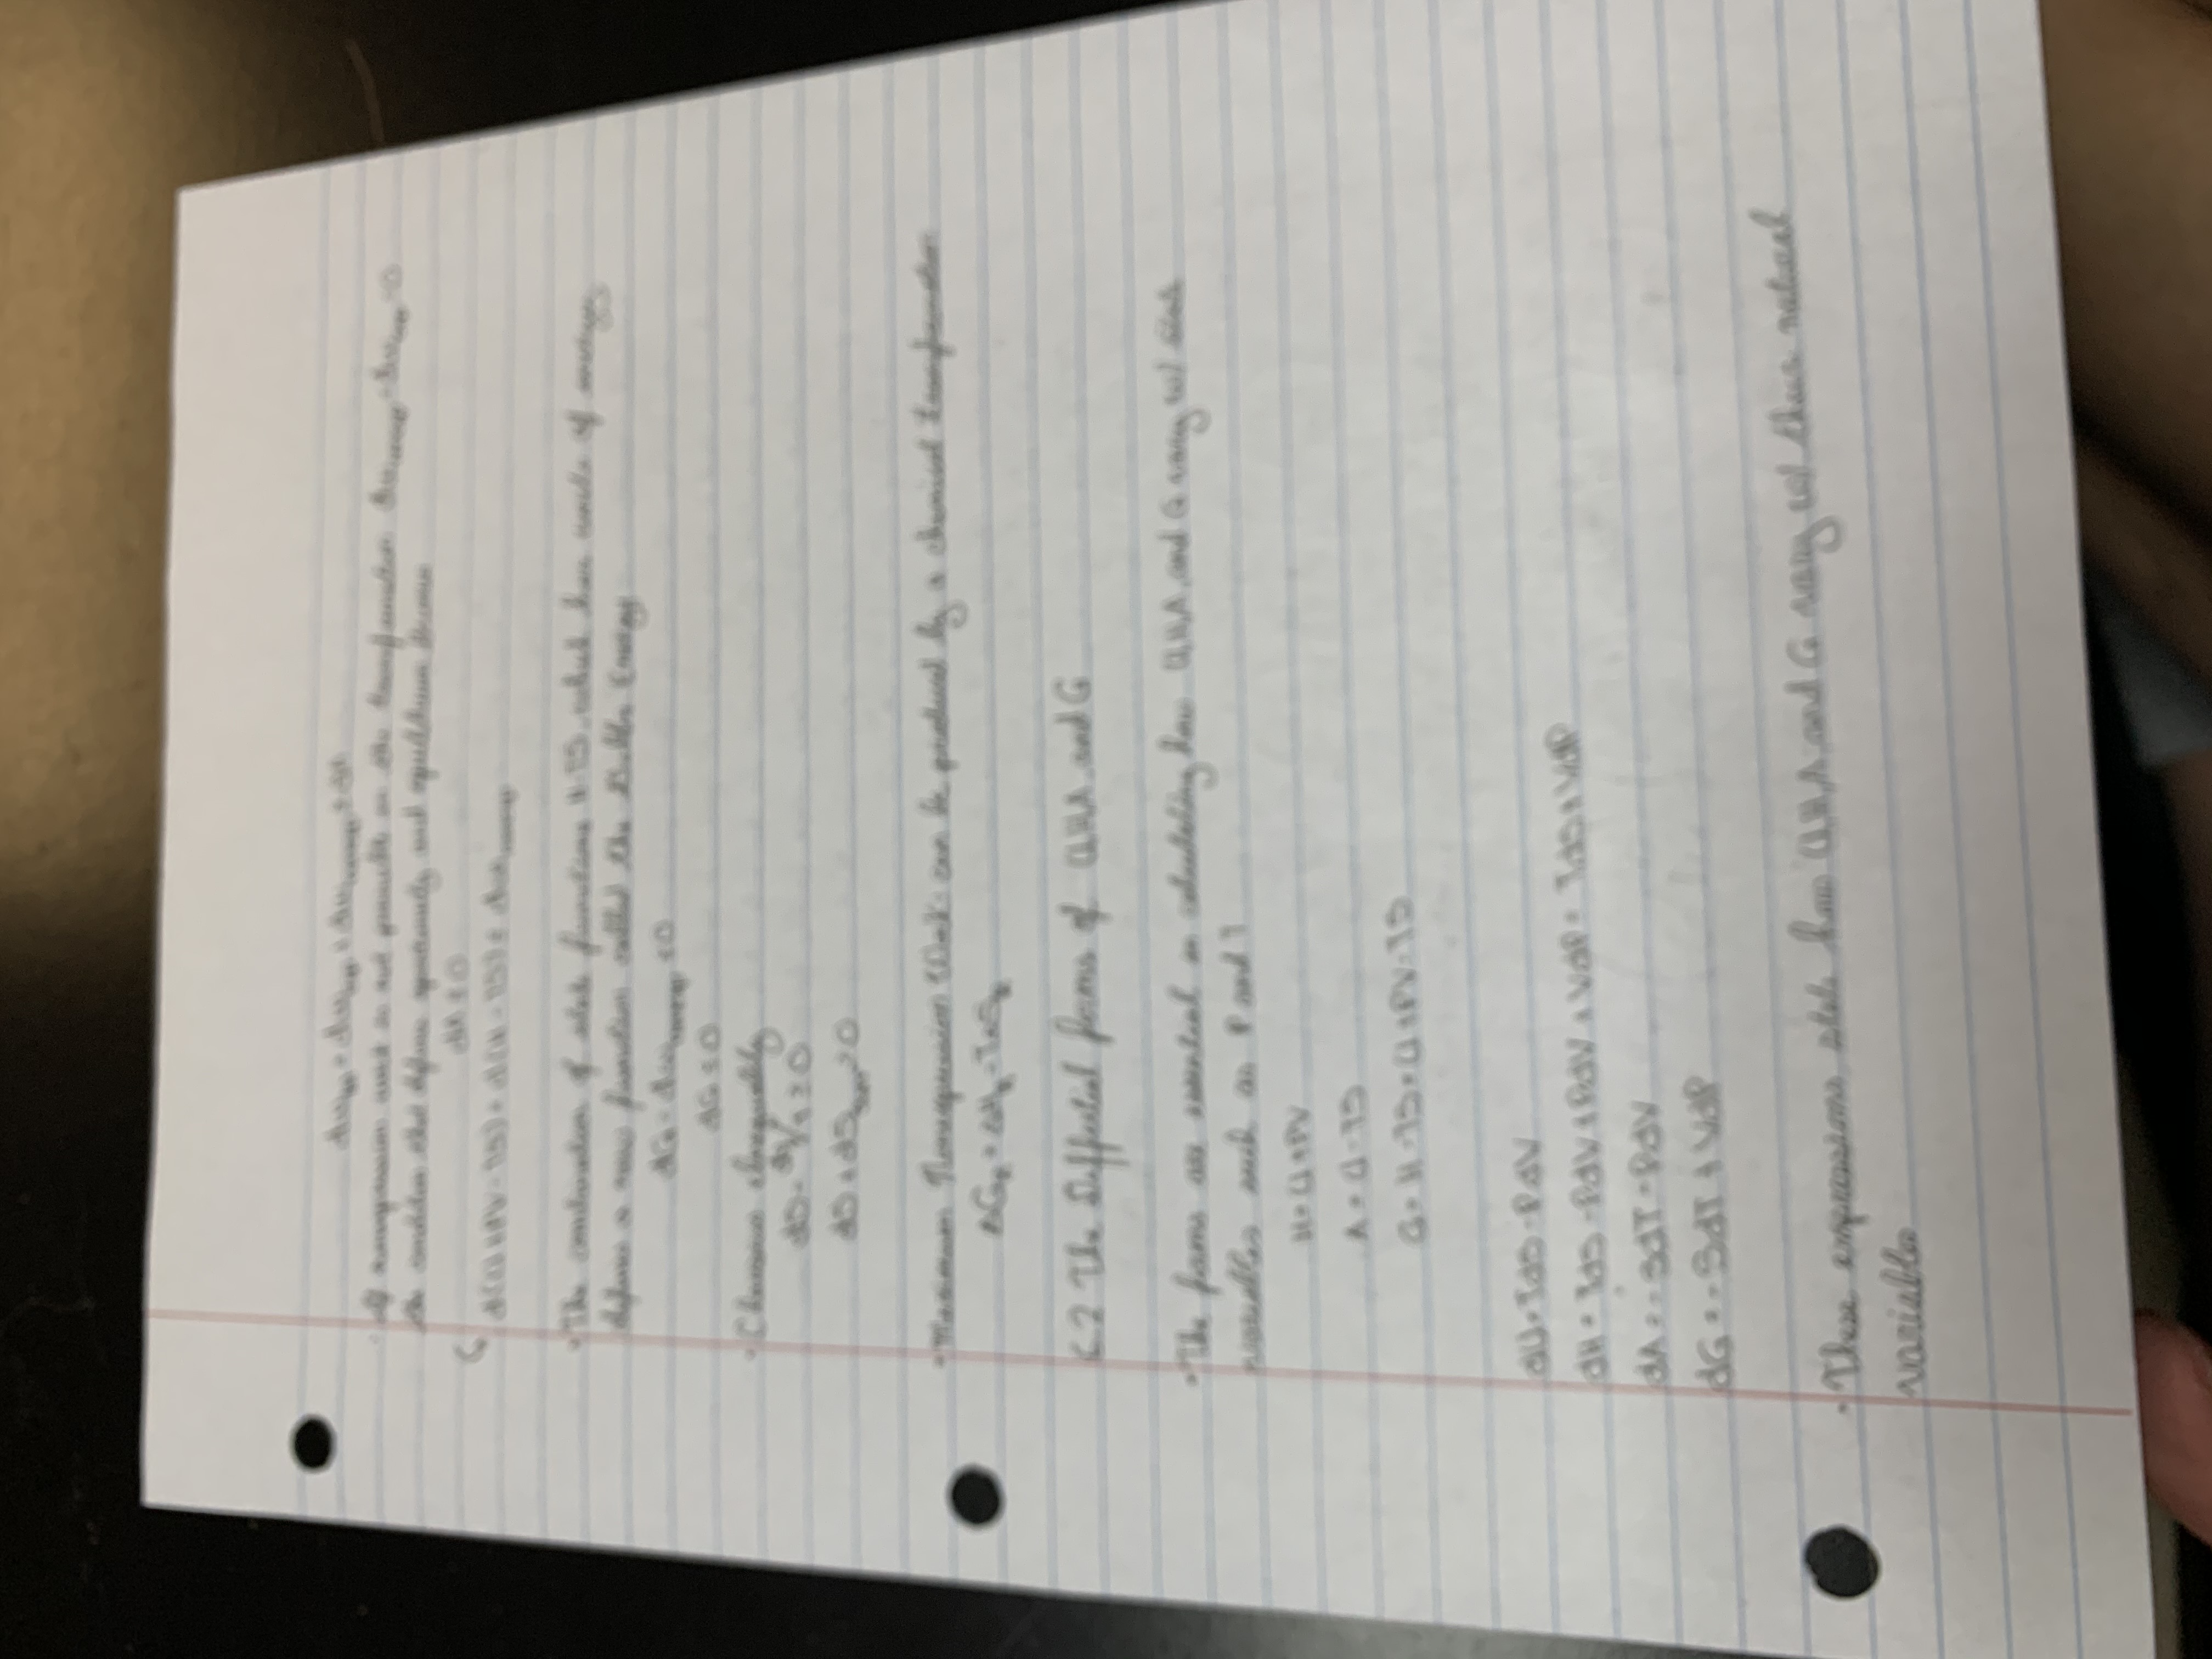 If nonexpansion work is not possible in the transformation
the condition that defines spontaneity and equilibrium becomes
dA ≤ 0
d(U+PV-TS) = d(H-TS) ≤
• The combination of state functions H-TS, which has units of energy
defines a new function called the Gibbs Energy
dG - ≤ 0
dG ≤ 0
• Clausius Inequality
dS - đq/T ≥ 0
dS + dSsurr ≥ 0
• Maximum Nonexpansion Work - can be produced by a chemical transformation
ΔG_R = ΔH_R - TΔS_R
6.2 The Differtial forms of U,H,A, and G
• The forms are essential in calculating how U,H,A, and G vary w/ state
variables such as P and T
H = U + PV
A = U - TS
G = H - TS = U + PV - TS
dU = TdS - PdV
dH = TdS - PdV + PdV + VdP = TdS + VdP
dA = -SdT - PdV
dG = -SdT + VdP
• These expressions state how U,H,A, and G vary w/ their natural
variables